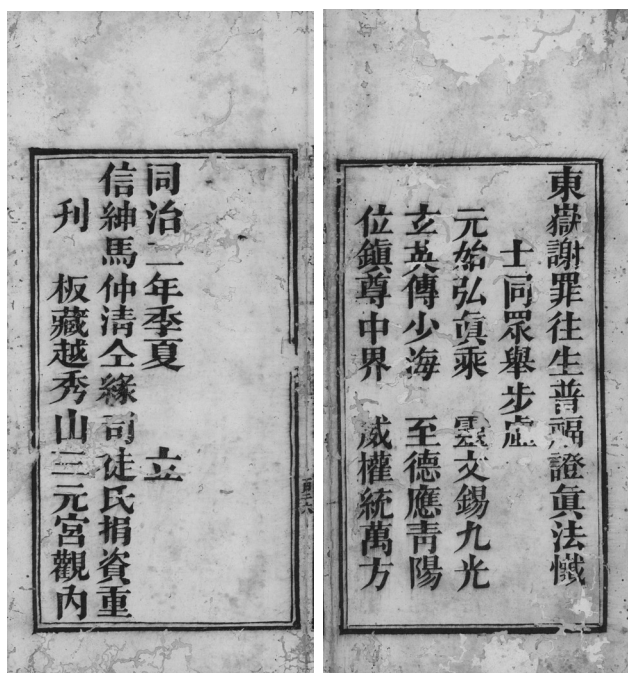 東嶽謝罪往生普福證眞法懺
士同眾舉步虛
元始弘眞乘 雲文錫九光
玄英傳少海 至德應靑陽
位鎭尊中界 威權統萬方
同治二年季夏 立
信紳馬仲清仝緣司徒氏捐資重
刋 板藏越秀山三元宮觀內